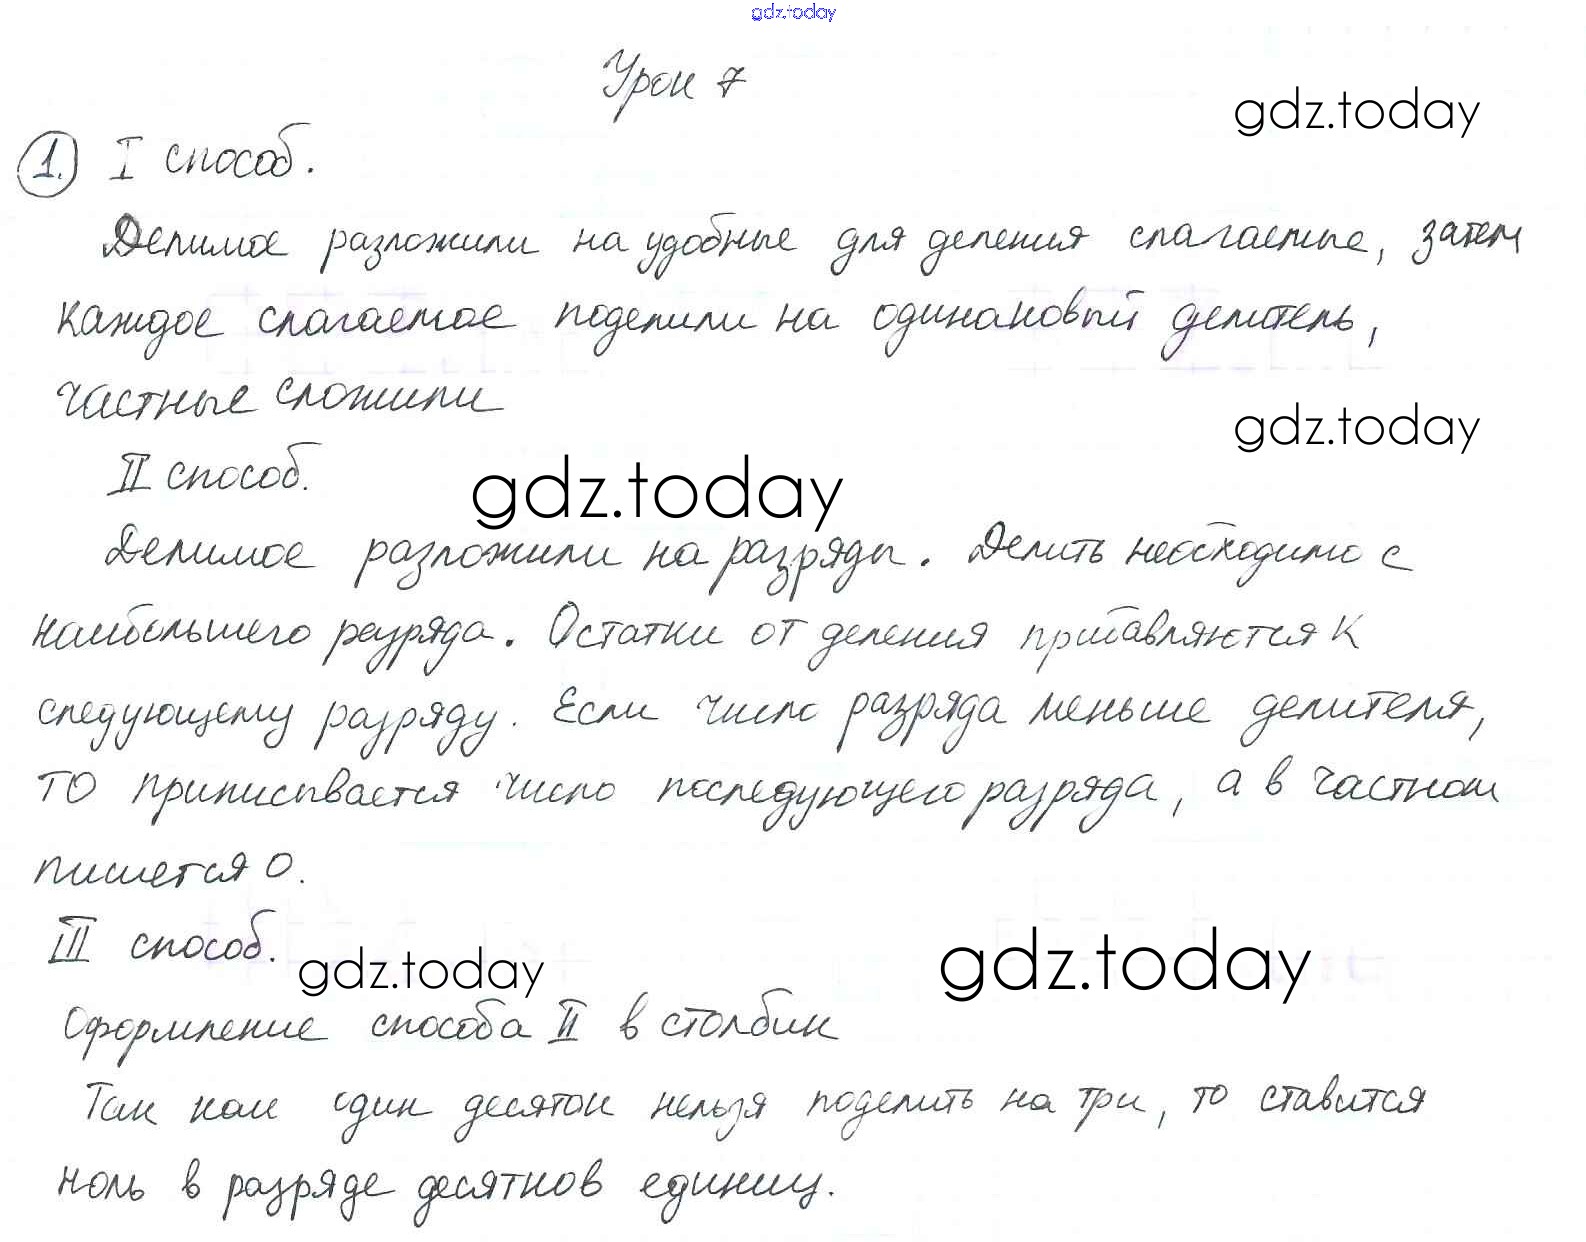 gdz.today
Урок 7
gdz.today
1. I способ.
Делимое разложили на удобные для деления слагаемые, затем
каждое слагаемое поделили на одинаковый делитель,
частные сложили
gdz.today
II способ.
gdz.today
Делимое разложили на разряды. Делить необходимо с
наибольшего разряда. Остатки от деления прибавляются к
следующему разряду. Если число разряда меньше делителя,
то приписывается число последующего разряда, а в частном
пишется 0.
III способ.
gdz.today
gdz.today
Оформление способа II в столбик
Так как один десяток нельзя поделить на три, то ставится
ноль в разряде десятков единиц.